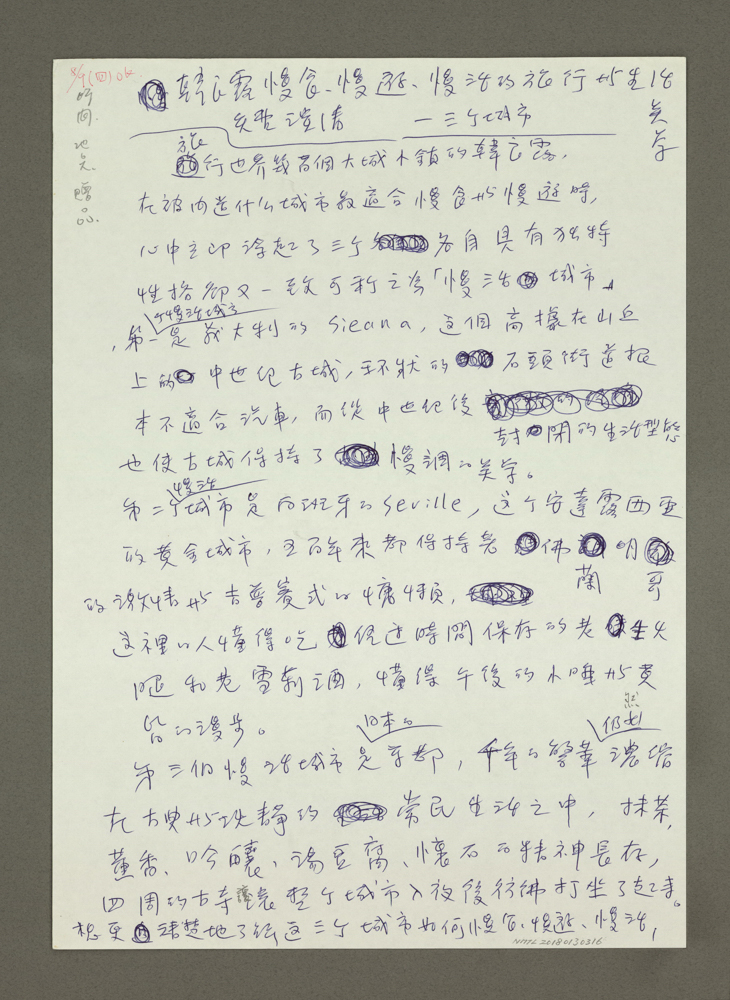 8/9(四)OK
時間.
地点
贈品.
韓良露慢食、慢遊、慢活的旅行與生活
美学
失望漫情 一三个城市
旅
行世界幾百個大城小鎮的韓良露,
在被问道什么城市最適合慢食與慢遊時,
心中立即浮起了三个各自具有独特
性格卻又一致可称之為「慢活城市」
慢活城市
,第一是義大利的Sieana,這個高據在山丘
上的中世纪古城,环狀的石頭街道根
本不適合汽車,而從中世纪後
封閉的生活型態
也使古城保持了慢調的美学。
慢活
第二个城市是西班牙的Seville,这个安達露西亞
的黄金城市,五百年來都保持著佛明
蘭 哥
的激情與吉普賽式的慵懶,
這裡的人懂得吃經過時間保存的老生火
腿和老雪莉酒,懂得午後的小睡與黄
昏的漫步。
日本的 仍然
第三個慢活城市是京都,千年的繁華濃縮
在古典與沈静的常民生活之中,抹茶,
薰香、吟釀、湯豆腐、懷石的精神長存,
四周的古寺讓整个城市入夜後彷彿打坐了起来。
想更清楚地了解這三个城市如何慢食、慢遊、慢活,
NMTL20180130316